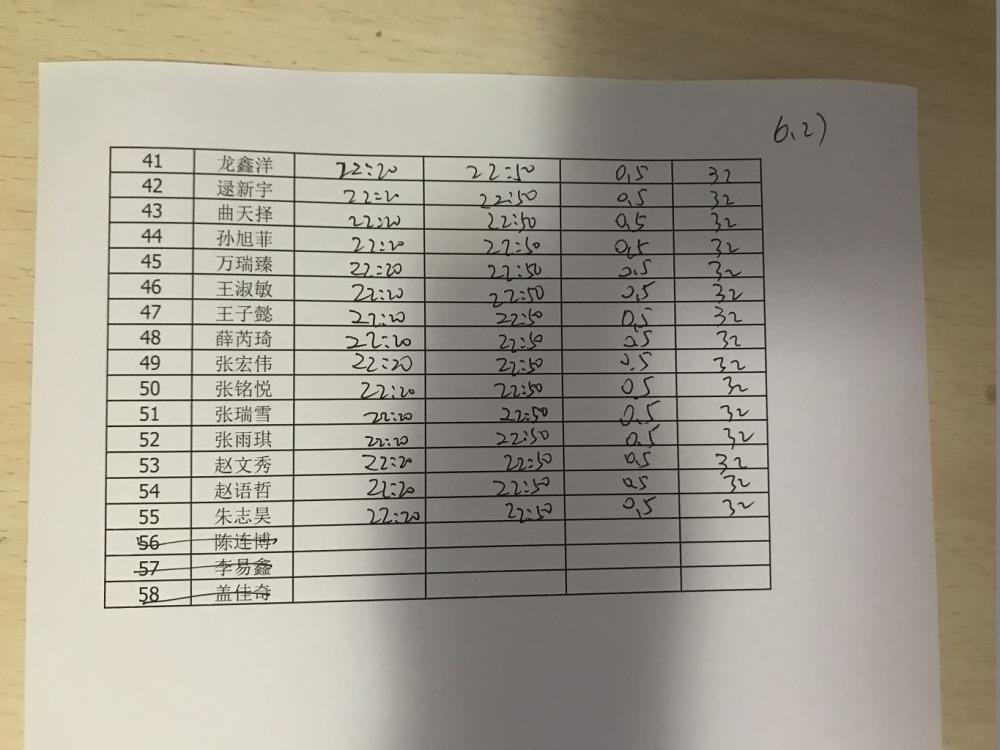 6.2)
41 龙鑫洋 22:20 22:50 0.5 32
42 逯新宇 22:20 22:50 0.5 32
43 曲天择 22:20 22:50 0.5 32
44 孙旭菲 22:20 22:50 0.5 32
45 万瑞臻 22:20 22:50 0.5 32
46 王淑敏 22:20 22:50 0.5 32
47 王子懿 22:20 22:50 0.5 32
48 薛芮琦 22:20 22:50 0.5 32
49 张宏伟 22:20 22:50 0.5 32
50 张铭悦 22:20 22:50 0.5 32
51 张瑞雪 22:20 22:50 0.5 32
52 张雨琪 22:20 22:50 0.5 32
53 赵文秀 22:20 22:50 0.5 32
54 赵语哲 22:20 22:50 0.5 32
55 朱志昊 22:20 22:50 0.5 32
56 陈连博
57 李易鑫
58 盖佳奇